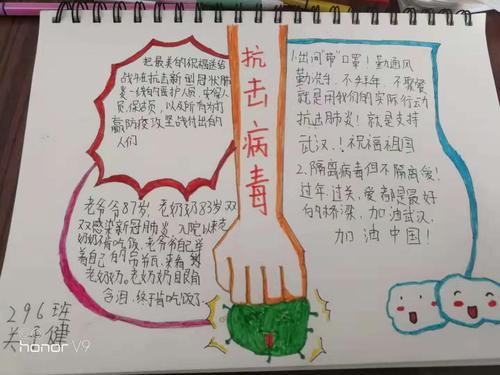 把最美的祝福送给
战斗在抗击新型冠状肺
炎一线的医护人员,安保人
员,保洁员,以及所有为打
赢防疫攻坚战付出的
人们
抗击病毒
1.出门"带"口罩!勤通风
勤洗手,不拜年,不聚餐
就是用我们的实际行动
抗击肺炎!就是支持
武汉,!祝福祖国
2.隔离病毒但不隔离爱!
过年过关,爱都是最好
的桥梁,加油武汉,
加油中国!
老爷爷87岁,老奶奶83岁双
双感染新冠肺炎,入院以来老
奶奶不肯吃饭,老爷爷自己举
着自己的吊瓶,来看到
老奶奶。老奶奶眼角
含泪,终于肯吃饭了
296班
关子健
honor V9